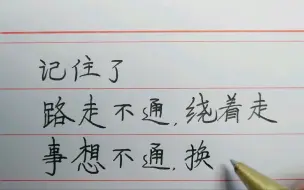 记住了
路走不通,绕着走
事想不通,换